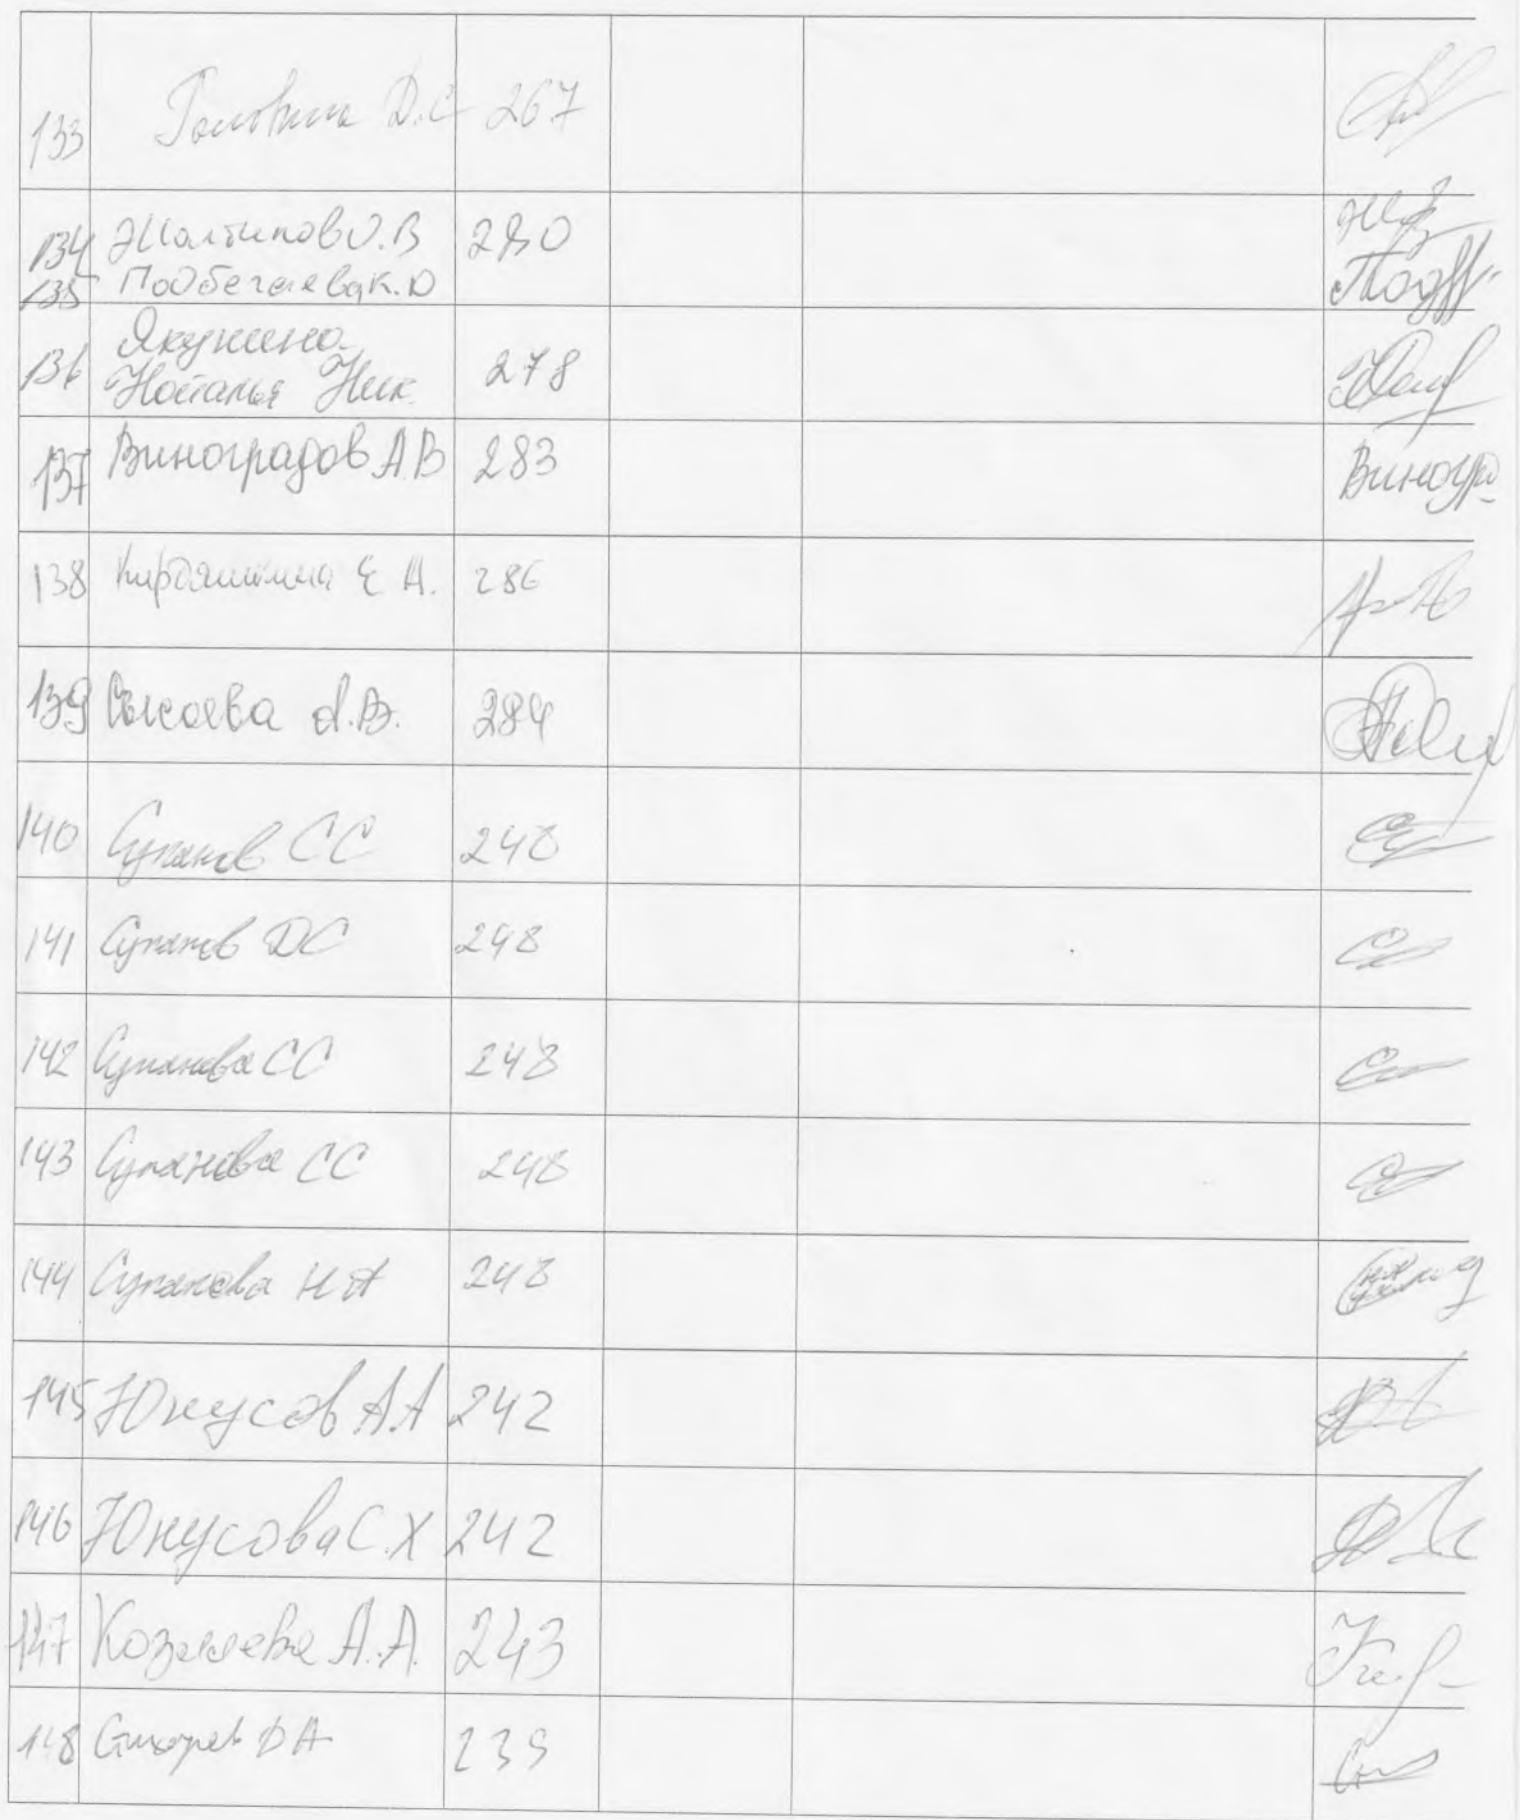 133 Головина Д.С 267
134 Жалтиков О.В 280
135 Подбегаева К.О
136 Якунина
Наталья Ник. 278
137 Виноградов А.В 283 Виногр
138 Е А. 286
139 Сысоева А.В. 284
140 Супанов СС 248
141 Супанов ДС 248
142 Супанова СС 248
143 Супанова СС 248
144 Супанова Н А 248
145 Юнусов А.А 242
146 Юнусова С.Х 242
147 Козылева А.А. 243
148 Д А 239